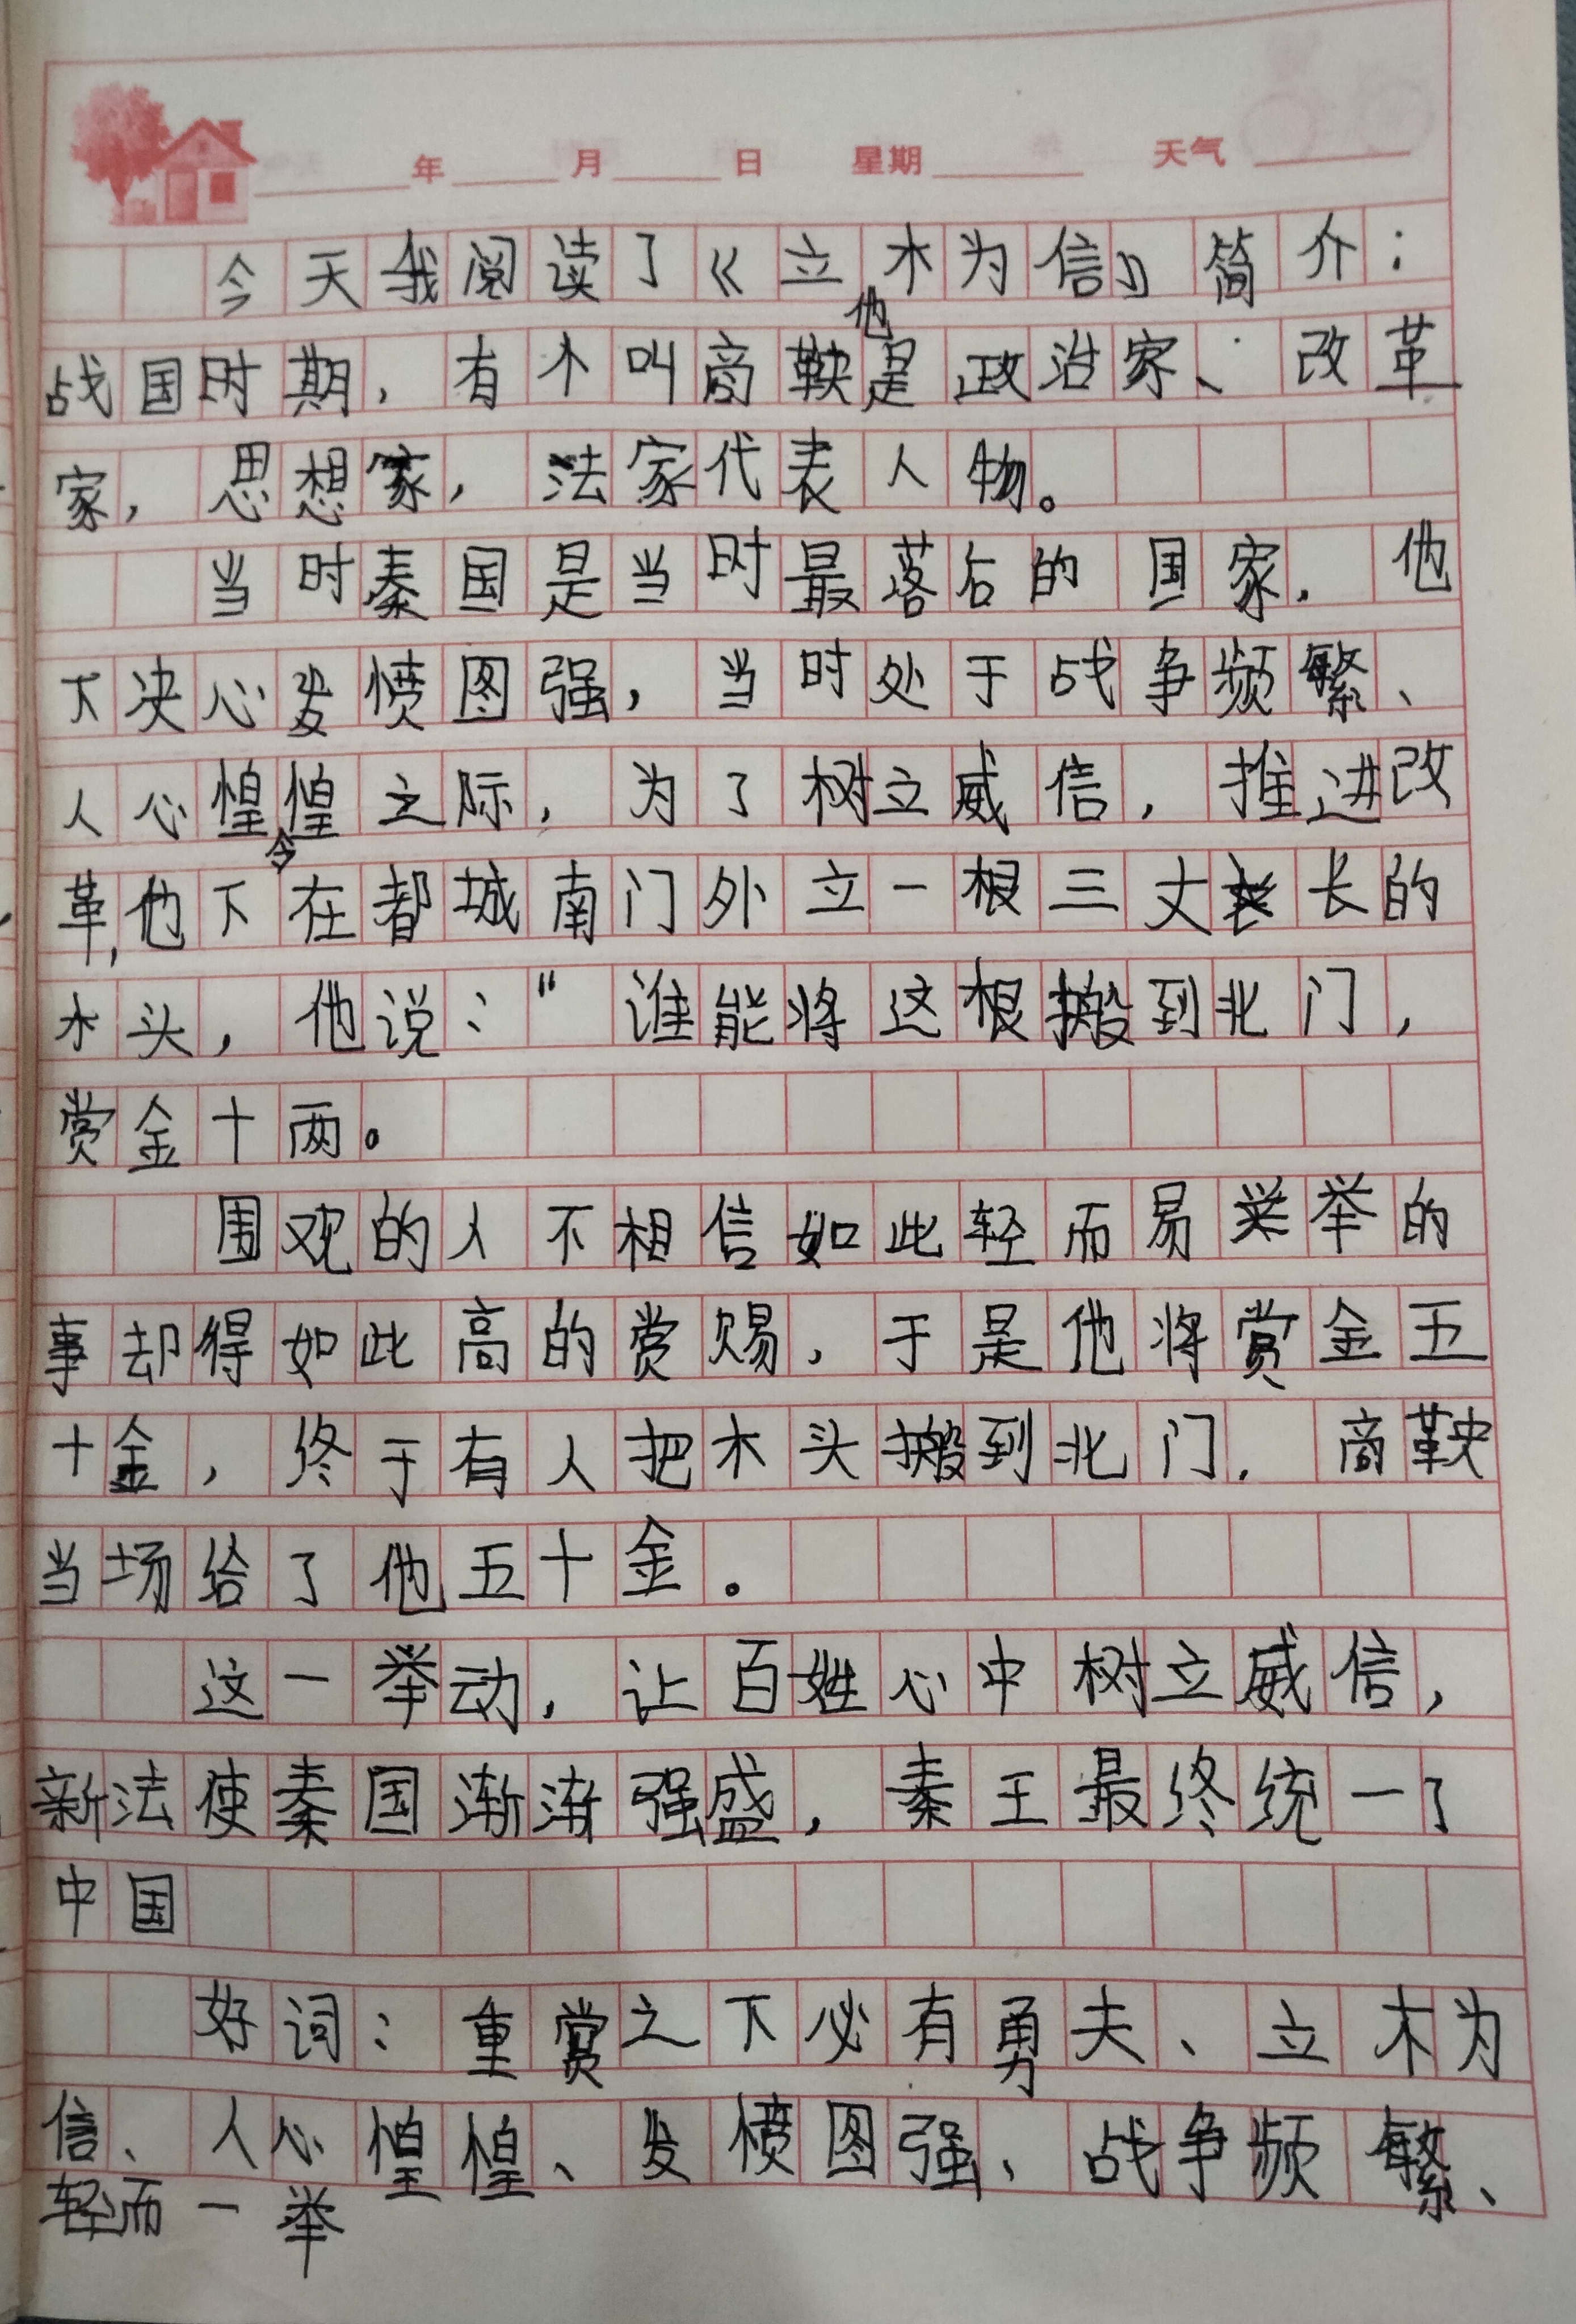 年 月 日 星期 天气
今天我阅读了《立木为信》简介：
战国时期，有个叫商鞅他是政治家、改革
家，思想家，法家代表人物。
当时秦国是当时最落后的国家．他
下决心发愤图强，当时处于战争频繁、
人心惶惶之际，为了树立威信，推进改
革，他下令在都城南门外立一根三丈长的
木头，他说：“谁能将这根搬到北门，
赏金十两。
围观的人不相信如此轻而易举的
事却得如此高的赏赐，于是他将赏金五
十金，终于有人把木头搬到北门．商鞅
当场给了他五十金。
这一举动，让百姓心中树立威信，
新法使秦国渐渐强盛，秦王最终统一了
中国
好词：重赏之下必有勇夫、立木为
信、人心惶惶、发愤图强、战争频繁、
轻而一举